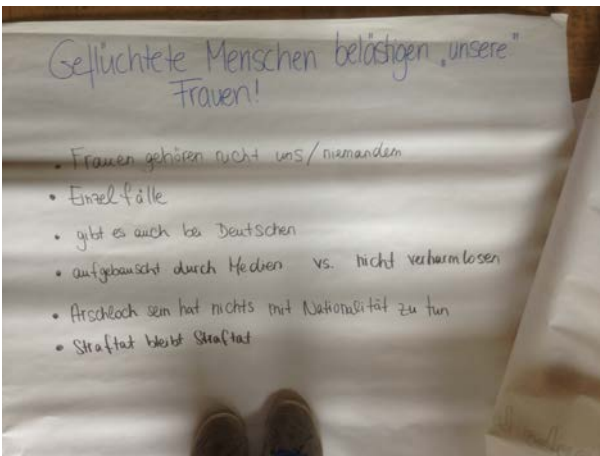 Geflüchtete Menschen belästigen „unsere"
Frauen!
• Frauen gehören nicht uns/niemandem
• Einzelfälle
• gibt es auch bei Deutschen
• aufgebauscht durch Medien vs. nicht verharmlosen
• Arschloch sein hat nichts mit Nationalität zu tun
• Straftat bleibt Straftat